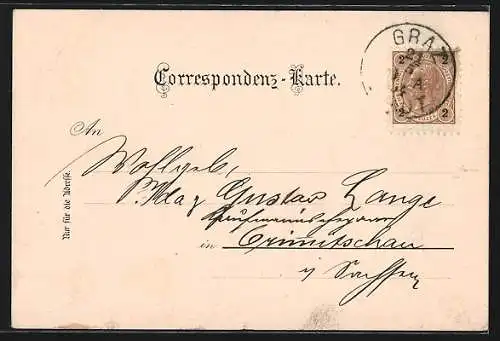 GRAZ
2 2
2 2
Correspondenz-Karte.
An
Wohlgeb.
Gustav Lange
in Crimitschau
Sachsen
Nur für die Adresse.